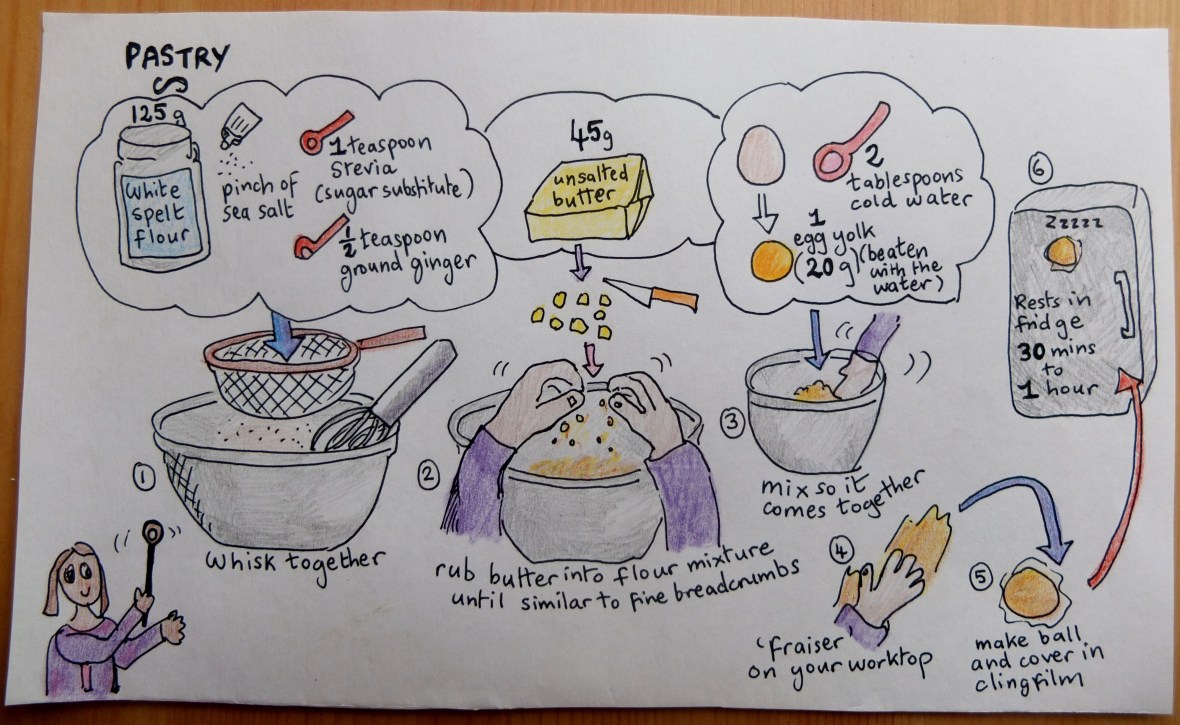 PASTRY
125g
White
spelt
flour
pinch of
sea salt
1 teaspoon
stevia
(sugar substitute)
½ teaspoon
ground ginger
45g
unsalted
butter
2
tablespoons
cold water
1
egg yolk
(20g) (beaten
with the
water)
1
Whisk together
2
rub butter into flour mixture
until similar to fine breadcrumbs
3
mix so it
comes together
4
'fraiser'
on your worktop
5
make ball
and cover in
clingfilm
6
zzzzz
Rests in
fridge
30 mins
to
1 hour